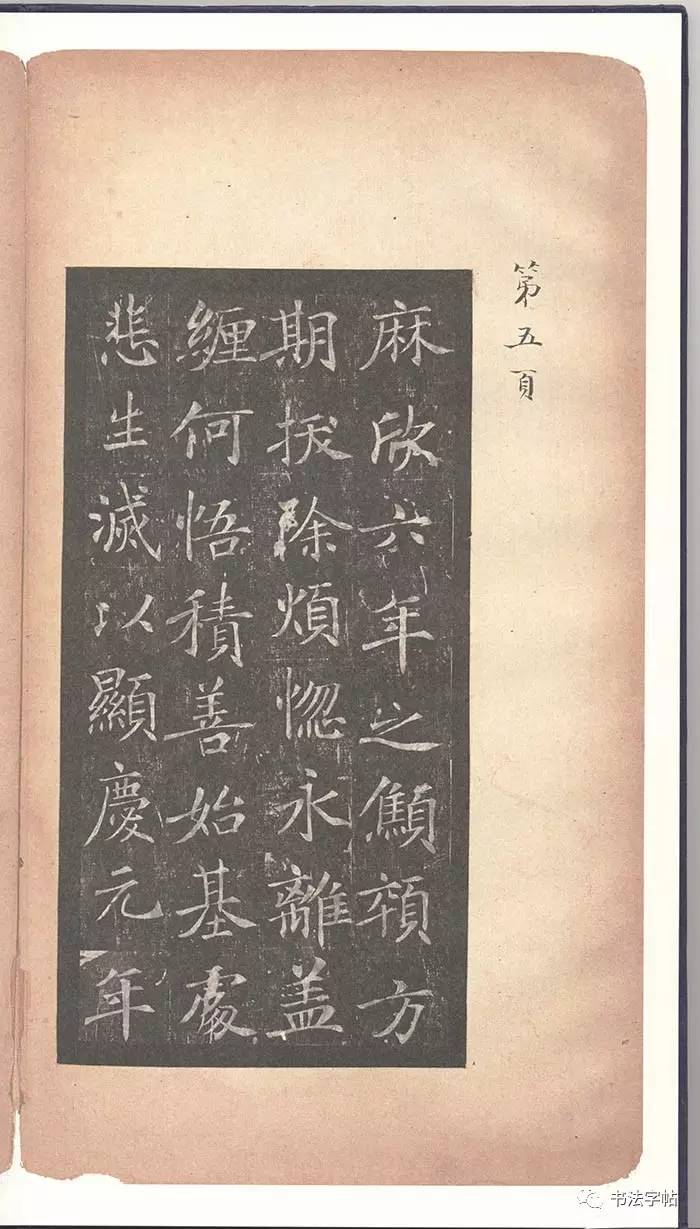 第五頁
麻欣六年之顦顇方
期拔除煩惚永離盖
纏何悟積善始基處
悲生滅以顯慶元年
书法字帖